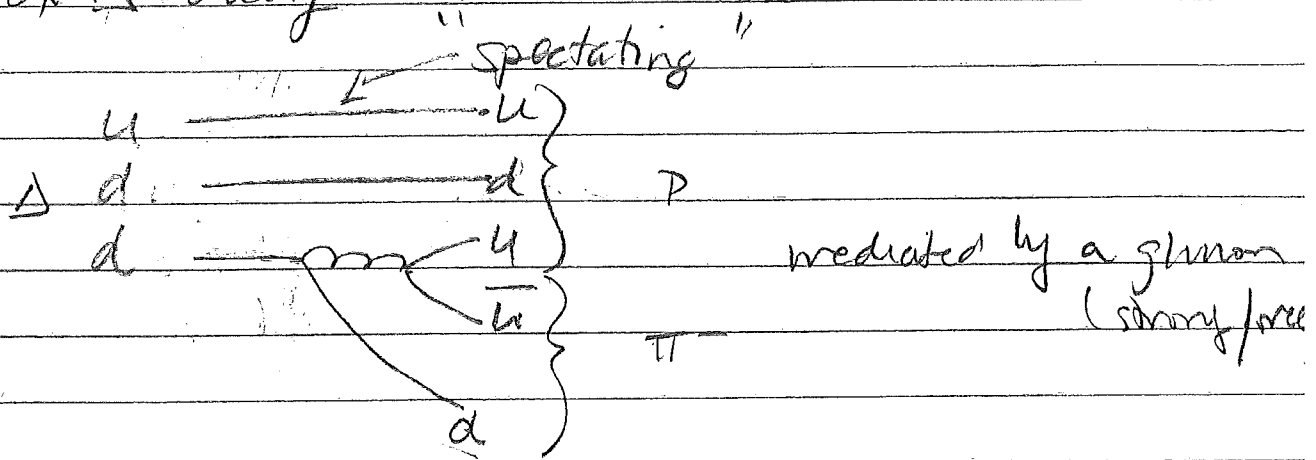 " spectating "
u u
Δ d d P
d u mediated by a gluon
ū (strong
π⁻
d